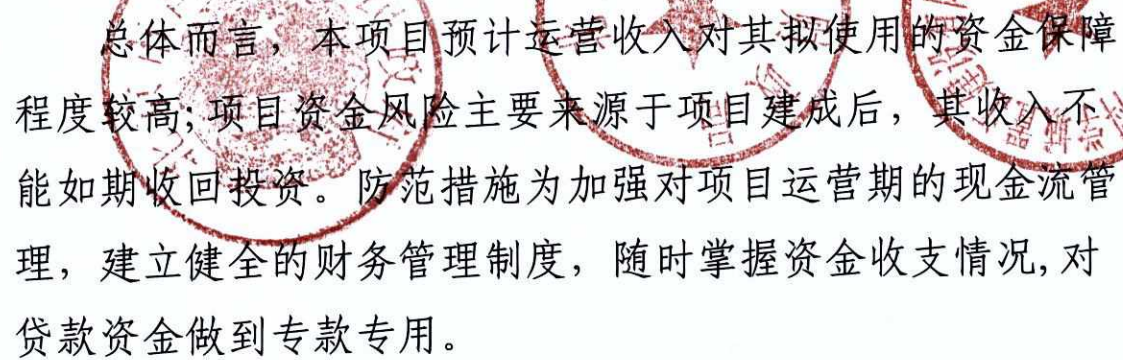 总体而言，本项目预计运营收入对其拟使用的资金保障
程度较高;项目资金风险主要来源于项目建成后，其收入不
能如期收回投资。防范措施为加强对项目运营期的现金流管
理，建立健全的财务管理制度，随时掌握资金收支情况,对
贷款资金做到专款专用。